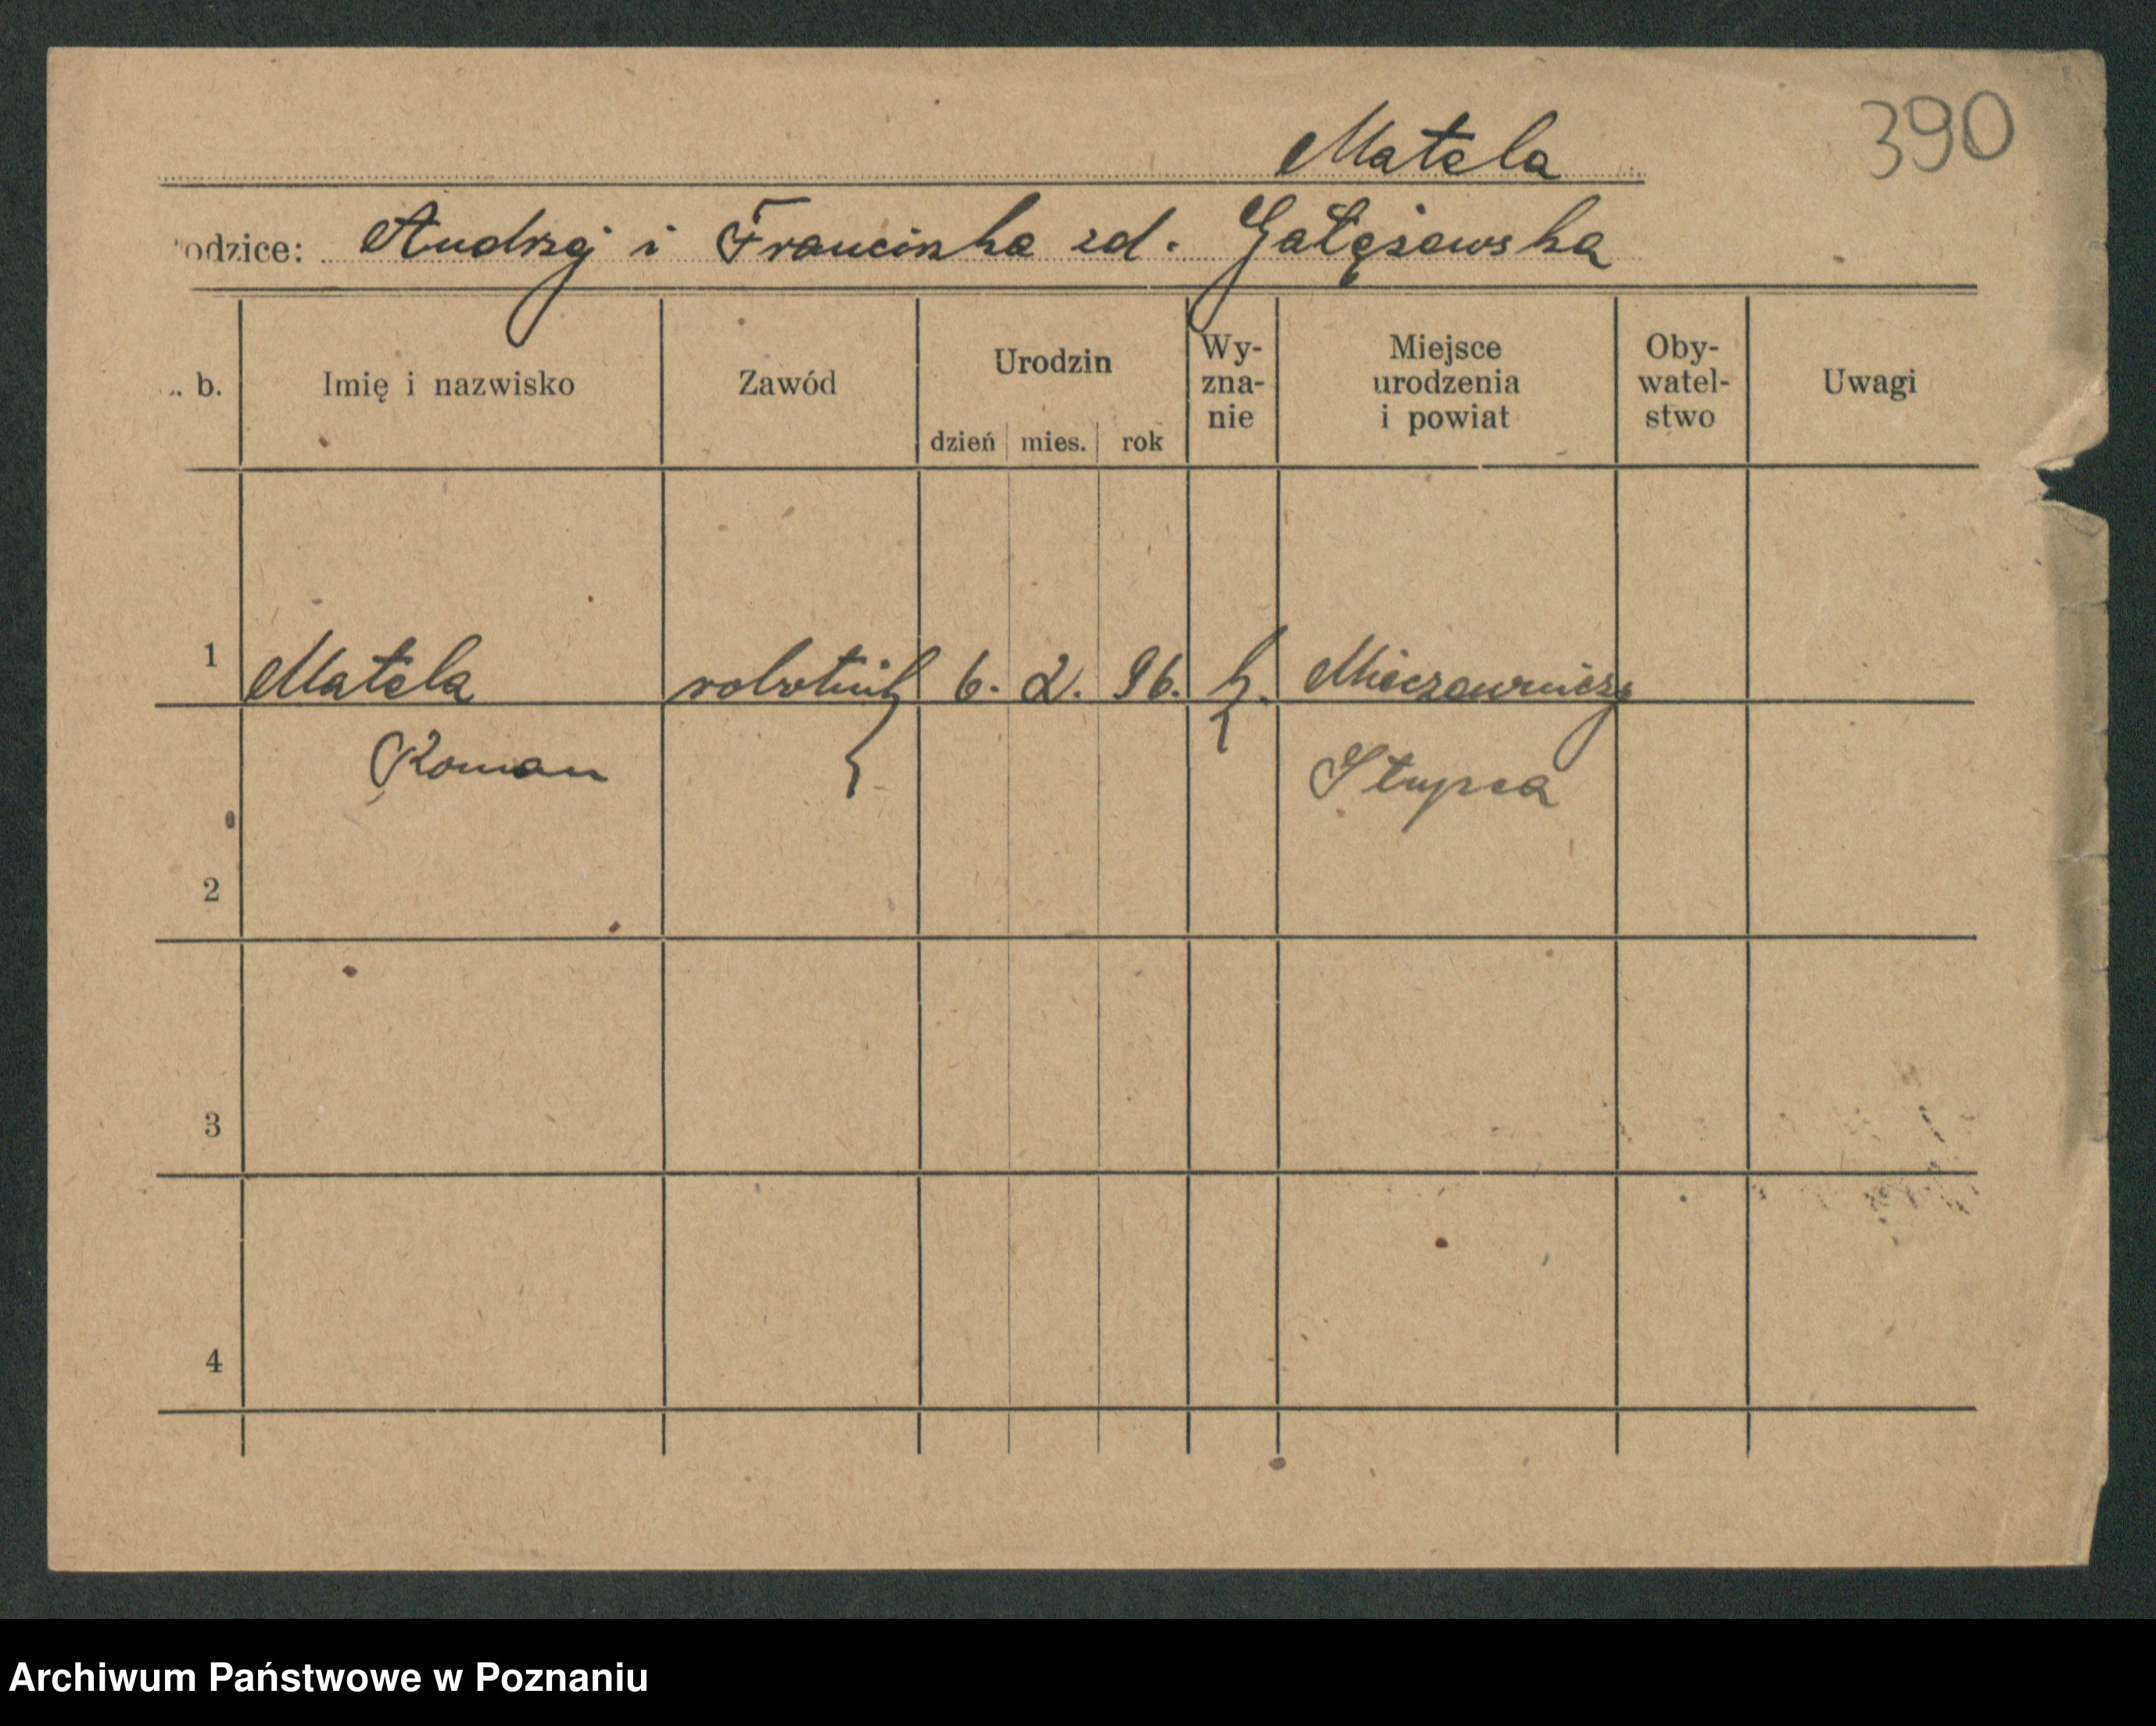 390
Matela
odzice: Andrzej i Franciszka zd. Gałężewska
. b.
Imię i nazwisko
Zawód
Urodzin
dzień mies. rok
Wy-
zna-
nie
Miejsce
urodzenia
i powiat
Oby-
watel-
stwo
Uwagi
1 Matela robotnik 6. 2. 96. k.
Roman Słupca
2
3
4
Archiwum Państwowe w Poznaniu